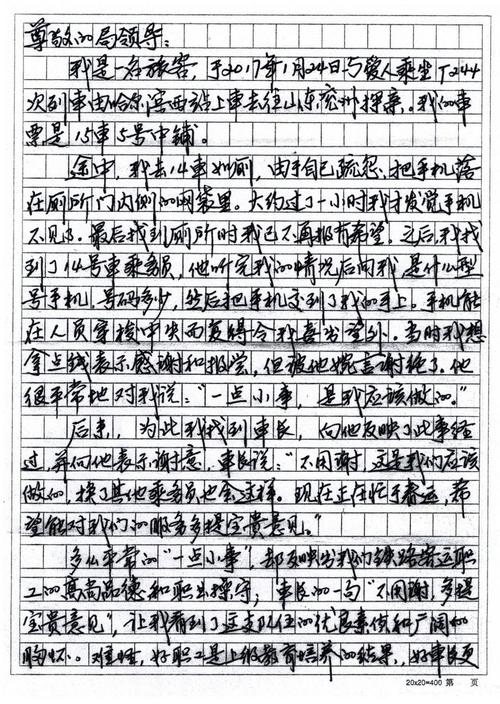 尊敬的局领导：
我是一名旅客，于2017年1月24日与爱人乘坐T244
次列車由哈尔滨西站上車去往山东兖州探亲。我的車
票是15車5号中铺。
途中，我去14車如厕，由于自己疏忽，把手机落
在厕所门内侧的网袋里。大约过了一小时我才发觉手机
不见了。最后找到厕所时我已不再报有希望。之后，我找
到了14号車乘务员，他听完我的情况后问我，是什么型
号手机，号码多少，然后把手机交到了我的手上。手机能
在人员穿梭中失而复得令我喜出望外。当时我想
拿点钱表示感谢和报尝，但被他婉言谢绝了。他
很平常地对我说：“一点小事，是我应该做的。”
后来，为此我找到車長，向他反映了此事经
过，并向他表示谢意，車長说：“不用谢，这是我们应该
做的，换了其他乘务员也会这样。现在正在忙于春运，希
望能对我们的服务多提宝贵意见。”
多么平常的“一点小事”，却反映出我们铁路客运职
工的高尚品德和职业操守；車長的一句“不用谢，多提
宝贵意见”，让我看到了这支队伍的优良素质和广阔的
胸怀。难怪，好职工是上级教育培养的结果，好車長更
20×20=400 第 页